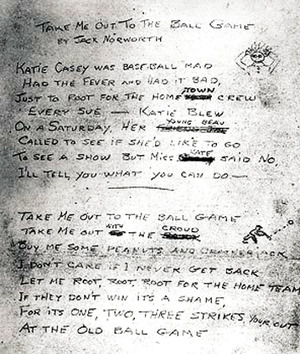 TAKE ME OUT TO THE BALL GAME
BY JACK NORWORTH
KATIE CASEY WAS BASE BALL MAD
HAD THE FEVER AND HAD IT BAD,
JUST TO ROOT FOR THE HOME TOWN CREW
EVERY SUE — KATIE BLEW
ON A SATURDAY, HER YOUNG BEAU
CALLED TO SEE IF SHE'D LIKE TO GO
TO SEE A SHOW BUT MISS KATE SAID NO,
I'LL TELL YOU WHAT YOU CAN DO —
TAKE ME OUT TO THE BALL GAME
TAKE ME OUT WITH THE CROWD
BUY ME SOME PEANUTS AND CRACKERJACK
I DON'T CARE IF I NEVER GET BACK
LET ME ROOT, ROOT, ROOT FOR THE HOME TEAM
IF THEY DON'T WIN ITS A SHAME,
FOR ITS ONE, TWO, THREE STRIKES, YOUR OUT
AT THE OLD BALL GAME